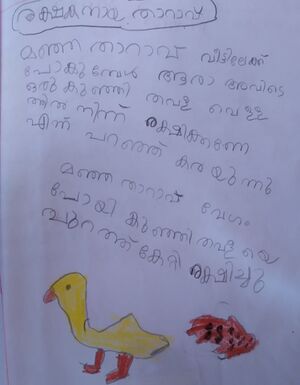 രക്ഷകനായ താറാവ്
മഞ്ഞ താറാവ് വീട്ടിലേക്ക്
പോകുമ്പോൾ ആതാ അവിടെ
ഒരു കുഞ്ഞി തവള വെള്ള
ത്തിൽ നിന്ന് രക്ഷിക്കണേ
എന്ന് പറഞ്ഞ് കരയുന്നു
മഞ്ഞ താറാവ് വേഗം
പോയി കുഞ്ഞി തവള യെ
പുറത്ത് കേറ്റി രക്ഷിച്ചു